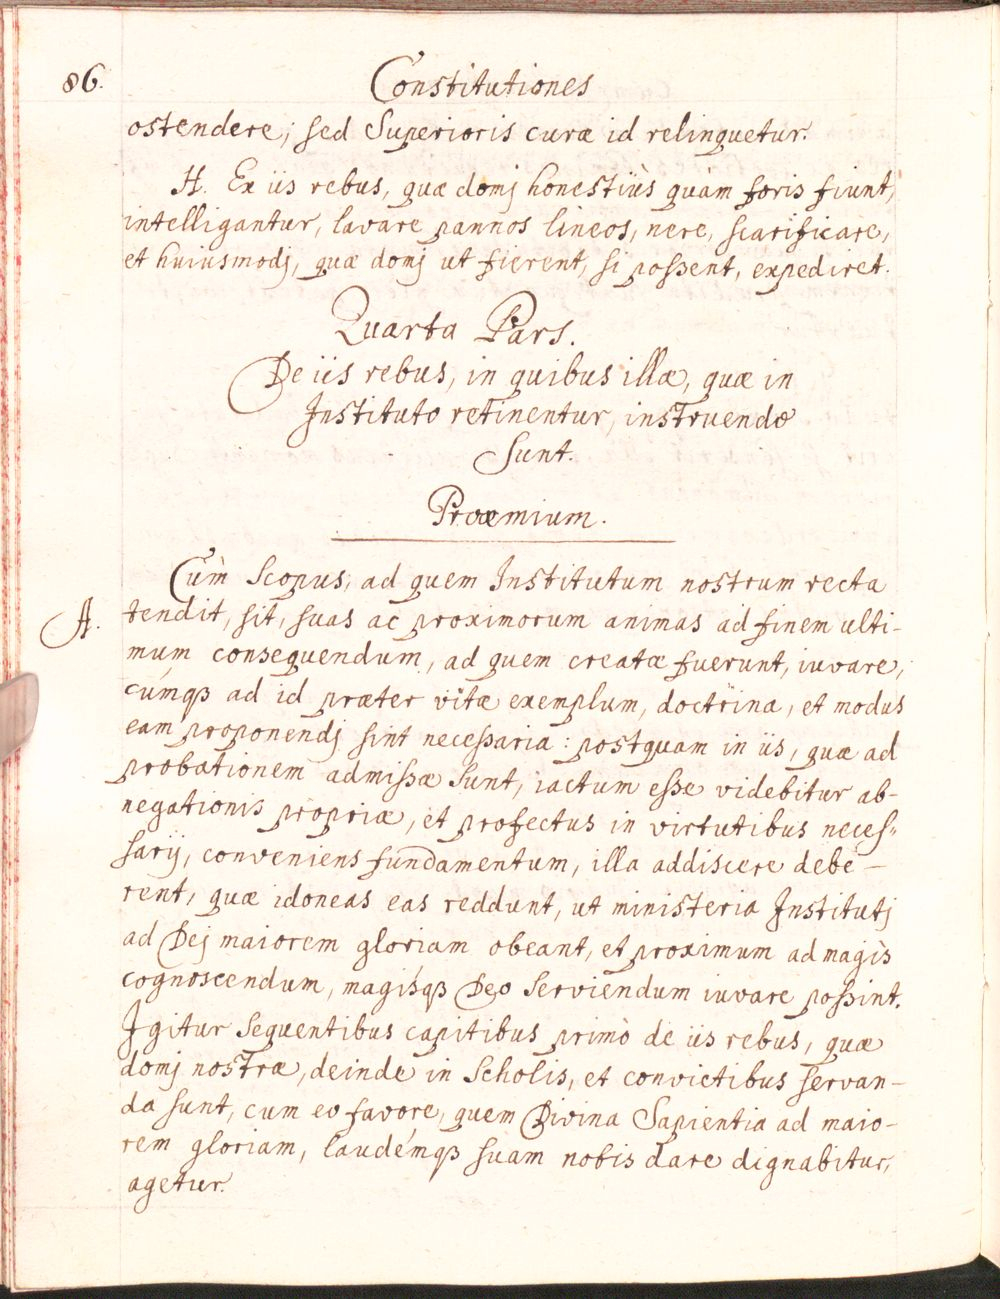 86.
Constitutiones
ostendere; sed Superioris curæ id relinquetur.
H. Ex iis rebus, quæ domj honestiùs quàm foris fiunt,
intelligantur, lavare pannos lineos, nere, scarificare,
et huiusmodj, quæ domj ut fierent, si possent, expediret.
Quarta Pars.
De iis rebus, in quibus illæ, quæ in
Instituto retinentur, instruendæ
Sunt.
Proæmium.
Cùm Scopus, ad quem Institutum nostrum recta
A. tendit, sit, suas ac proximorum animas ad finem ulti-
mum consequendum, ad quem creatæ fuerunt, iuvare,
cúmqß ad id præter vitæ exemplum, doctrina, et modus
eam proponendj sint necessaria: postquam in iis, quæ ad
probationem admissæ sunt, iactum esse videbitur ab-
negationis propriæ, et profectus in virtutibus neces-
sarij, conveniens fundamentum, illa addiscere debe-
rent, quæ idoneas eas reddunt, ut ministeria Institutj
ad Dej maiorem gloriam obeant, et proximum ad magis
cognoscendum, magísqß Deo serviendum iuvare possint.
Igitur sequentibus capitibus primò de iis rebus, quæ
domj nostræ, deinde in Scholis, et convictibus servan-
da sunt, cum eo favore, quem Divina Sapientia ad maio-
rem gloriam, laudémqß suam nobis dare dignabitur,
agetur.